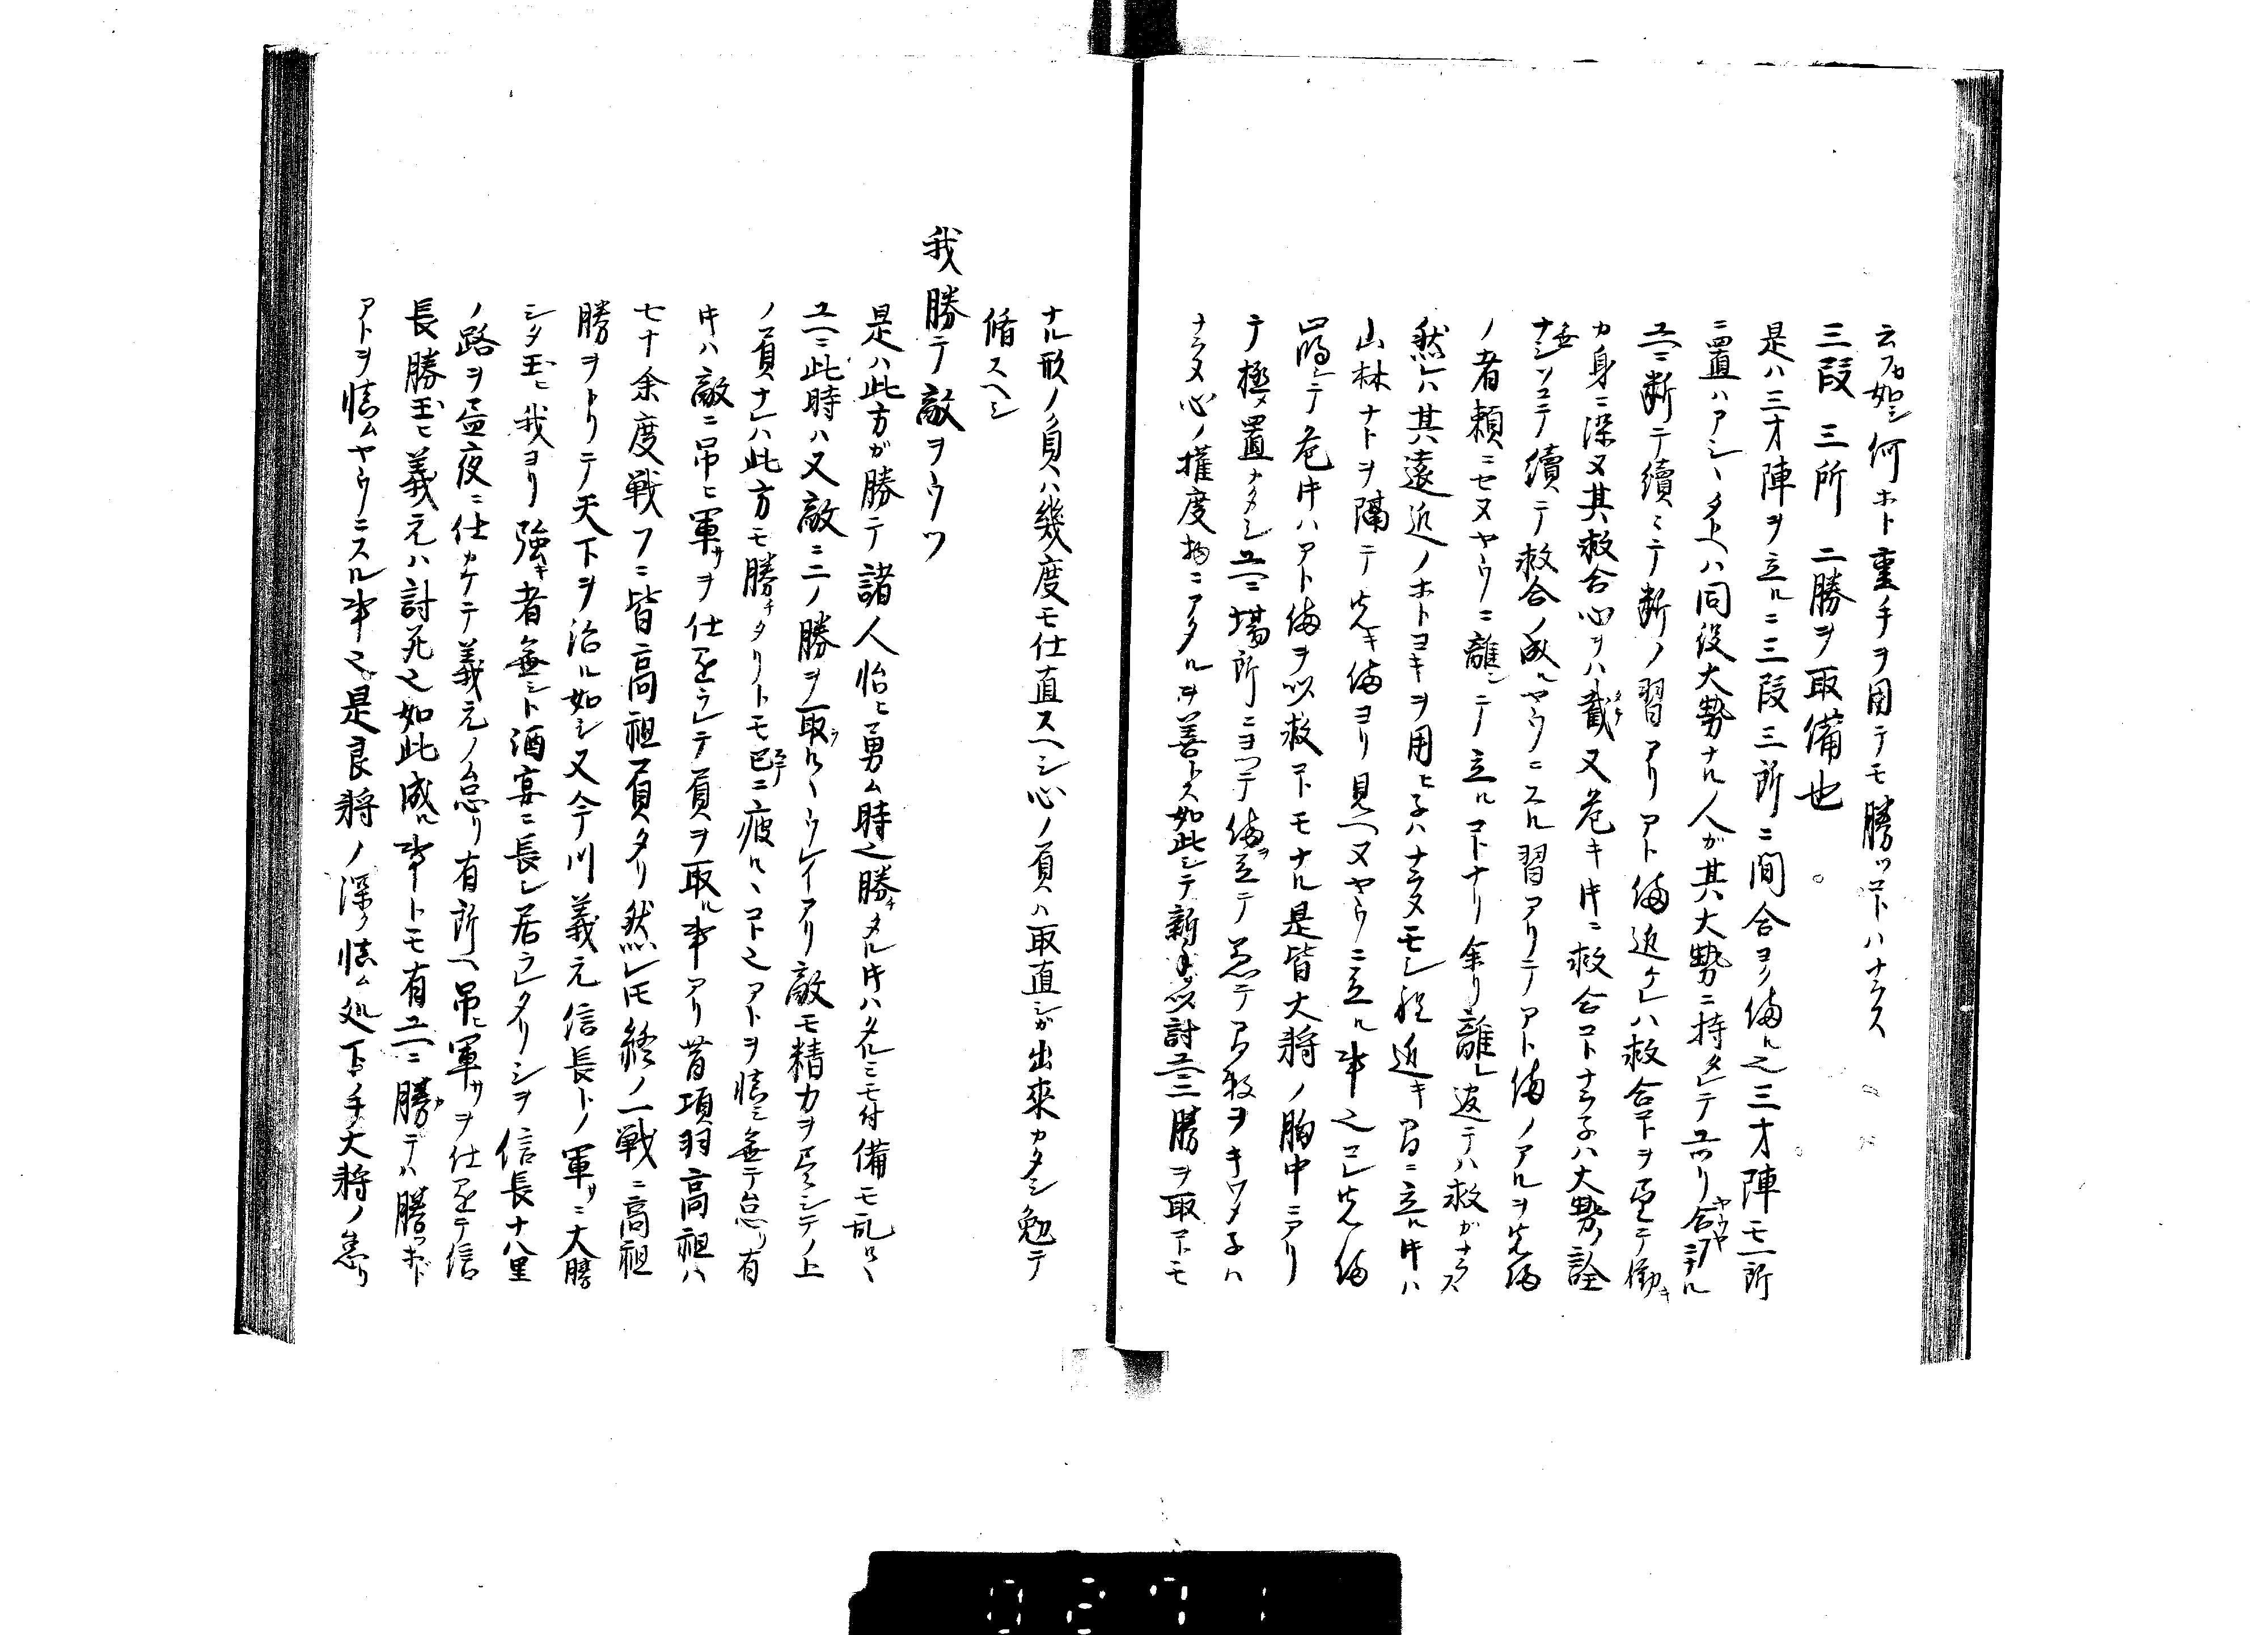 云フカ如シ何ホト重手ヲ用テモ勝ツコトハナラス
三段三所二勝ヲ取備也
是ハ三才陣ヲ立ルニ三段三所ニ間合ヨク備ル也三才陣モ一所
ニ置ハアシヽタトヘハ同役大勢ナル人ガ其大勢ニ持タレテユツリ合
ユヘニ断テ續ミテ断ノ習アリアト備近ケレハ救合コトヲ置テ働キ
カ身ニ深ヌ其救合心ヲハ截ヌ危キ時ニ救合コトナラ子ハ大勢ノ詮
ナシソコテ續テ救合ノ成ルヤウニスル習アリテアト備ノアルヲ先備
ノ者頼ニセヌヤウニ離シテ立ルコトナリ余リ離レ過テハ救ガナラス
然レハ其遠近ノホトヨキヲ用ヒ子ハナラヌモシ程近キ間ニ立ル時ハ
山林ナトヲ隔テ先キ備ヨリ見ヘヌヤウニ立ル事也コレ先備
テ危時ハアト備ヲ以救コトモナル是皆大将ノ胸中ニアリ
テ極メ置ナタシユヘニ場所ニヨツテ備ヲ立テ
ナラヌ心ノ權度物ニアタルヲ善トス如此シテ新手ヲ以討ユヘニ勝ヲ取コトモ
ナル形ノ負ハ幾度モ仕直スヘシ心ノ負ハ取直シガ出來カタシ勉テ
脩スヘシ
我勝テ敵ヲウツ
是ハ此方ガ勝テ諸人怡ヒ勇ム時也勝チタル時ハタルミモ付備モ乱ルヽ
ユヘニ此時ハ又敵ニ二ノ勝ヲ取ラルヽウレイアリ敵モ精力ヲ尽シテノ上
ノ負ナレハ此方モ勝チタリトモ已ニ疲ルヽコト也アトヲ慎ミ無テ怠リ有
時ハ敵ニ吊ヒ軍サヲ仕返ラレテ負ヲ取ル事アリ昔項羽高祖ハ
七十余度戦フニ皆高祖負タリ然レトモ終ノ一戦ニ高祖
勝ヲトリテ天下ヲ治ル如シ又今川義元信長トノ軍サニ大勝
シタマヒ我ヨリ強キ者無シト酒宴ニ長シ居ラレタリシヲ信長十八里
ノ路ヲ昼夜ニ仕カケテ義元ノ怠リ有所ヘ吊ヒ軍サヲ仕返テ信
長勝玉ヒ義元ハ討死也如此成ル事トモ有ユヘニ勝カテハ勝ツホド
アトヲ慎ムヤウニスル事也是良将ノ深ク慎ム処下手大将ノ怠リ